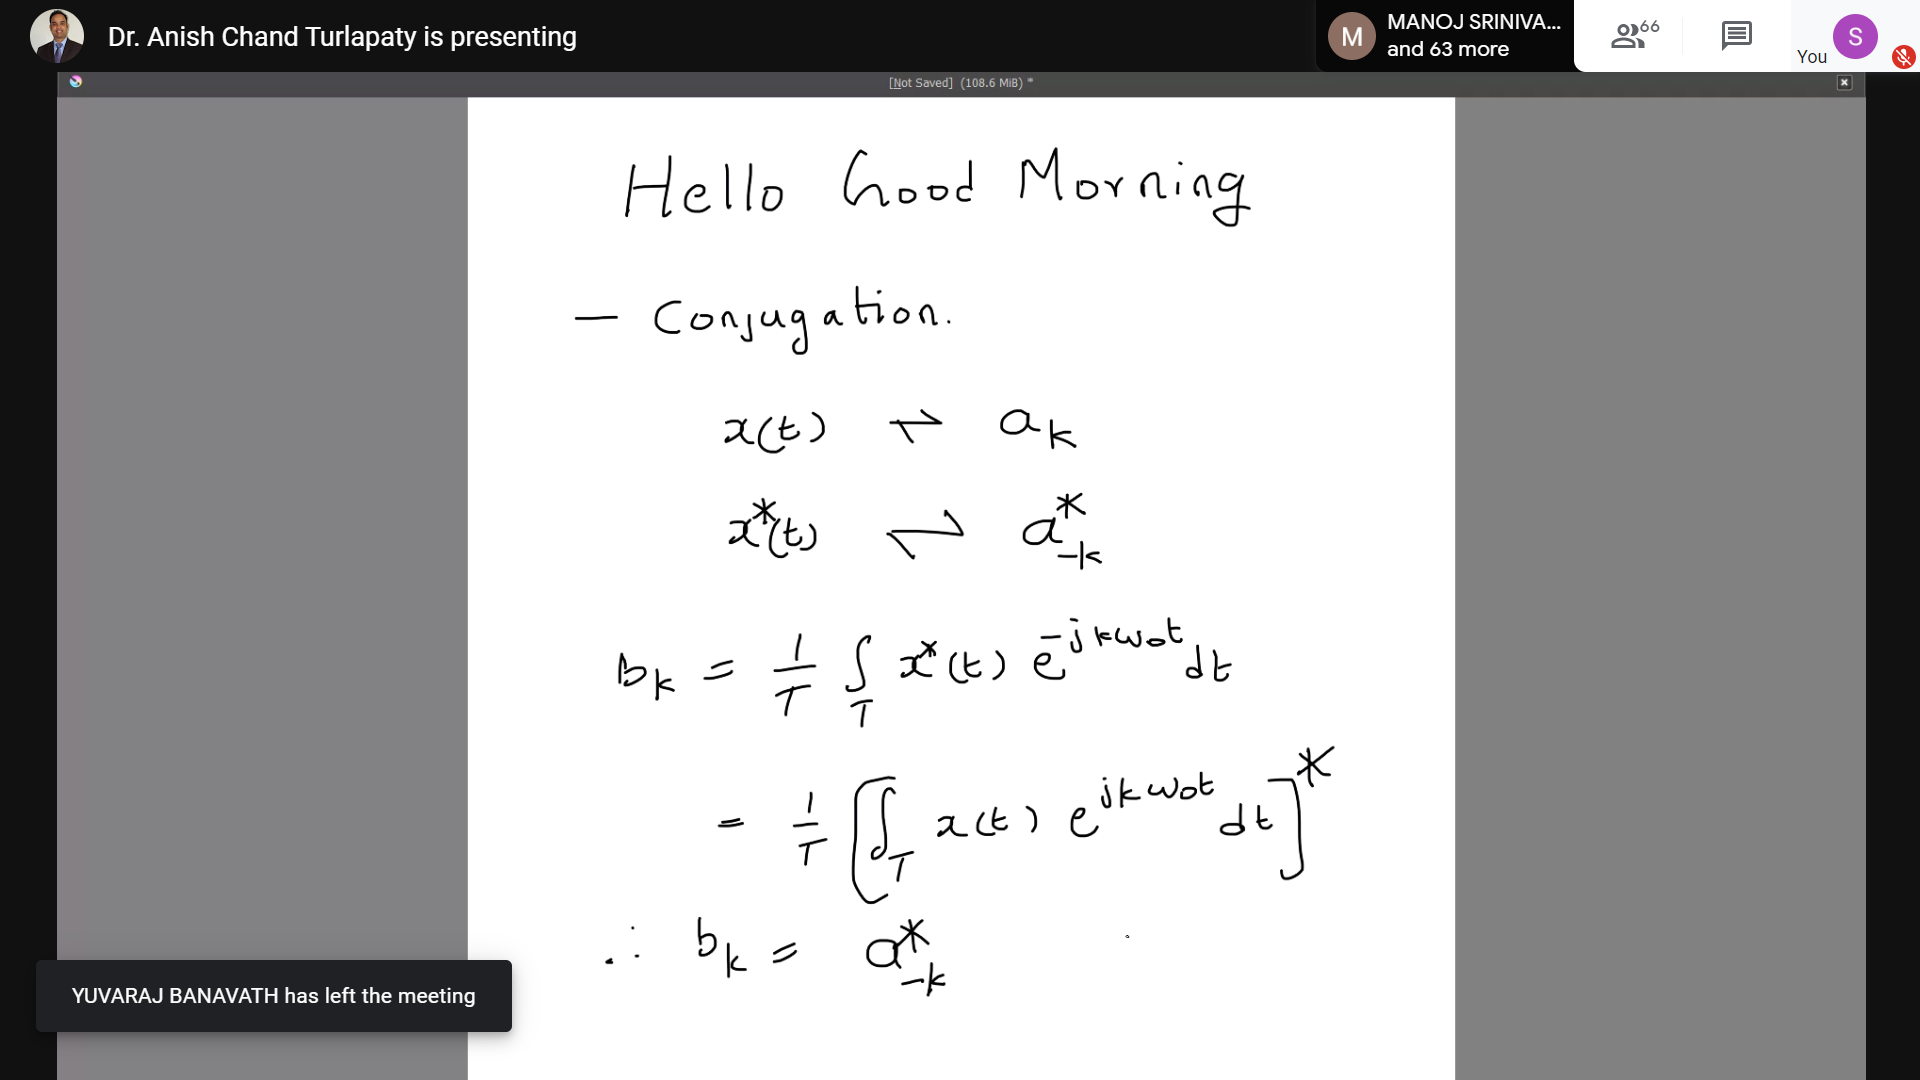 Dr. Anish Chand Turlapaty is presenting
M
MANOJ SRINIVA...
and 63 more
66
You
S
[Not Saved] (108.6 MiB) *
Hello Good Morning
— Conjugation.
x(t) ⇌ a_k
x*(t) ⇌ a*_-k
b_k = 1/T ∫_T x*(t) e^-jkω₀t dt
= 1/T [∫_T x(t) e^jkω₀t dt]*
∴ b_k = a*_-k
YUVARAJ BANAVATH has left the meeting